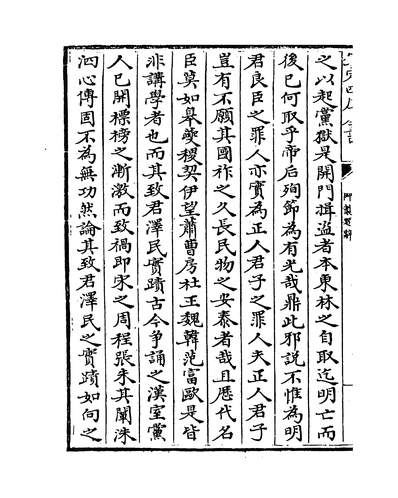 之以起黨獄是開門揖盗者本東林之自取迄明亡而
後已何取乎帝后殉節為有光哉鼎此邪說不惟為明
君良臣之罪人亦實為正人君子之罪人夫正人君子
豈有不願其國祚之久長民物之安泰者哉且歷代名
臣莫如皋夔稷契伊望蕭曹房杜王魏韓范富歐是皆
非講學者也而其致君澤民實蹟古今爭誦之漢室黨
人已開標榜之漸激而致禍即宋之周程張朱其闡洙
泗心傳固不為無功然論其致君澤民之實蹟如向之
御製題辭